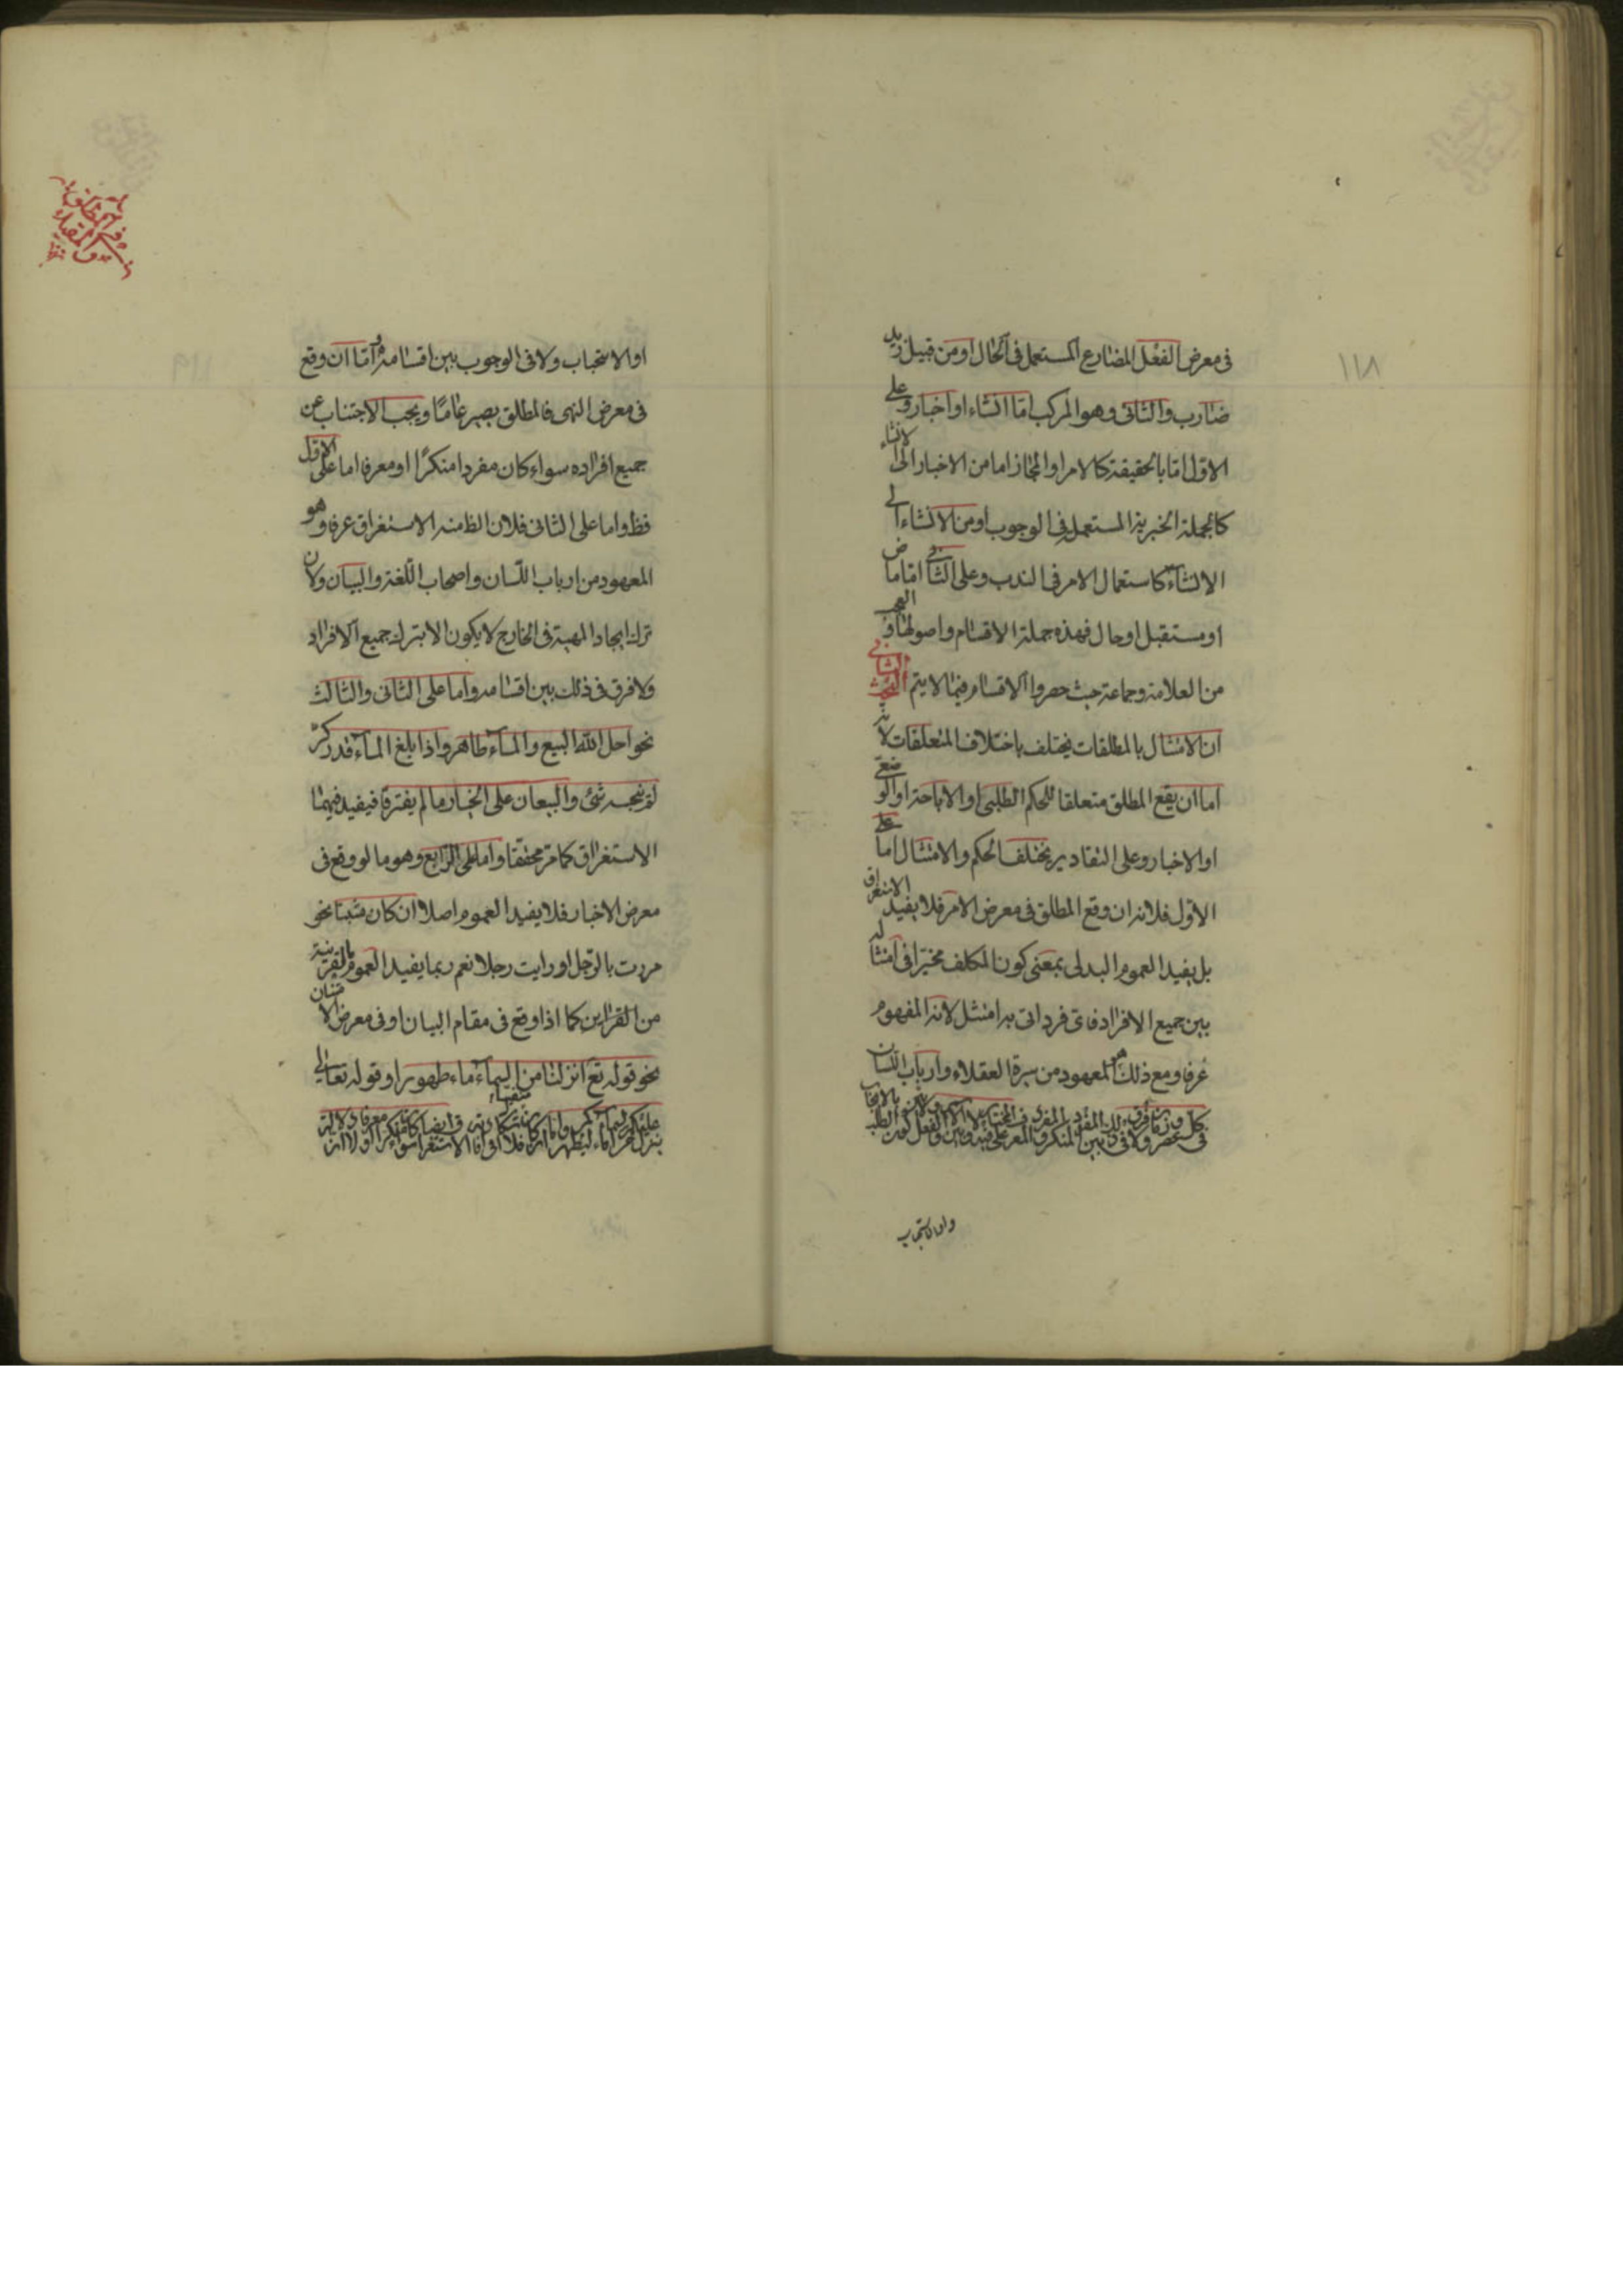 ١١٨
فى معرض الفعل المضارع المستعمل فى الحال او من قبيل زيد
ضارب والثانى وهو المركب امّا انشاء او اخبار وعلى
الاوّل امّا بالحقيقة كالامر او المجاز اما من الاخبار الى الانشاء
كالجملة الخبرية المستعمل فى الوجوب او من الانشاء الى
الانشاء كاستعمال الامر فى الندب وعلى الثانى امّا ماض
او مستقبل او حال فهذه جملة الاقسام واصولها والعجب
من العلامة وجماعة حيث حصروا الاقسام فيما لا يتم البحث الثانى
ان الامتثال بالمطلقات يختلف باختلاف المتعلقات لانه
اما ان يقع المطلق متعلقا للحكم الطلبى او الاباحة او الوضعى
او الاخبار وعلى التقادير يختلف الحكم والامتثال اما على
الاوّل فلانه ان وقع المطلق فى معرض الامر فلا يفيد الاستغراق
بل يفيد العموم البدلى بمعنى كون المكلف مخيّرا فى امتثاله
بين جميع الافراد فاى فرد اتى به امتثل لانه المفهوم
عرفا ومع ذلك هو المعهود من سيرة العقلاء وارباب اللسان
فى كل عصر وزمان ولا فرق فى ذلك بين المفرد المنكر و المفرد المعرف
وان كاستحباب
او الاستحباب ولا فى الوجوب بين اقسامه وامّا ان وقع
فى معرض النهى فالمطلق يصير عامّا ويجب الاجتناب عن
جميع افراده سواء كان مفردا منكرًا او معرفا اما على الاوّل
فظ واما على الثانى فلان الظ منه الاستغراق عرفا وهو
المعهود من ارباب اللّسان واصحاب اللّغة والبيان ولان
ترك ايجاد المهية فى الخارج لا يكون الا بترك جميع الافراد
ولا فرق فى ذلك بين اقسامه واما على الثانى والثالث
نحو احل الله البيع والماء طاهر واذا بلغ الماء قدر كرّ
لم ينجسه شئ والبيعان على الخيار ما لم يفترقا فيفيد فيهما
الاستغراق كما مرّ محققا واما على الرّابع وهو ما لو وقع فى
معرض الاخبار فلا يفيد العموم اصلا ان كان مثبتا نحو
مررت بالرّجل او رايت رجلا نعم ربما يفيد العموم بالقرينة
من القراين كما اذا وقع فى مقام البيان او فى معرض الامتنان
نحو قوله تع انزلنا من السماء ماء طهورا او قوله تعالى
ينزل عليكم من السماء ماء ليطهركم به واما ان كان